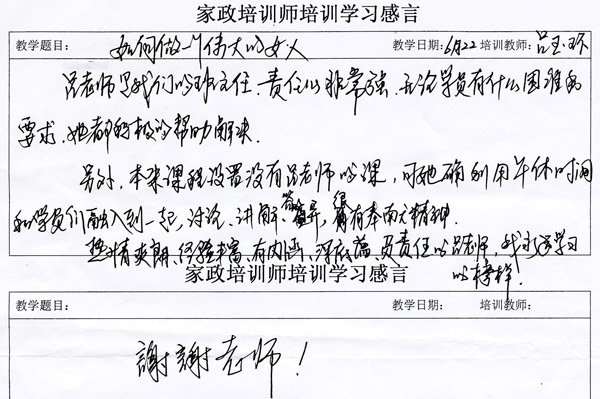 家政培训师培训学习感言
教学题目： 如何做一个伟大的女人 教学日期：6月22 培训教师：吕玉环
吕老师是我们的班主任、责任心非常强、无论学员有什么困难和
要求、她都积极的帮助解决.
另外、本来课程设置没有吕老师的课，可她确利用午休时间
和学员们融入到一起，讨论、讲解、答异、很有奉南大精神.
热情爽朗、经验丰富、有内涵、深底蕴、负责任的吕老师，我永远学习
家政培训师培训学习感言 的榜样.
教学题目： 教学日期： 培训教师：
謝謝老师！